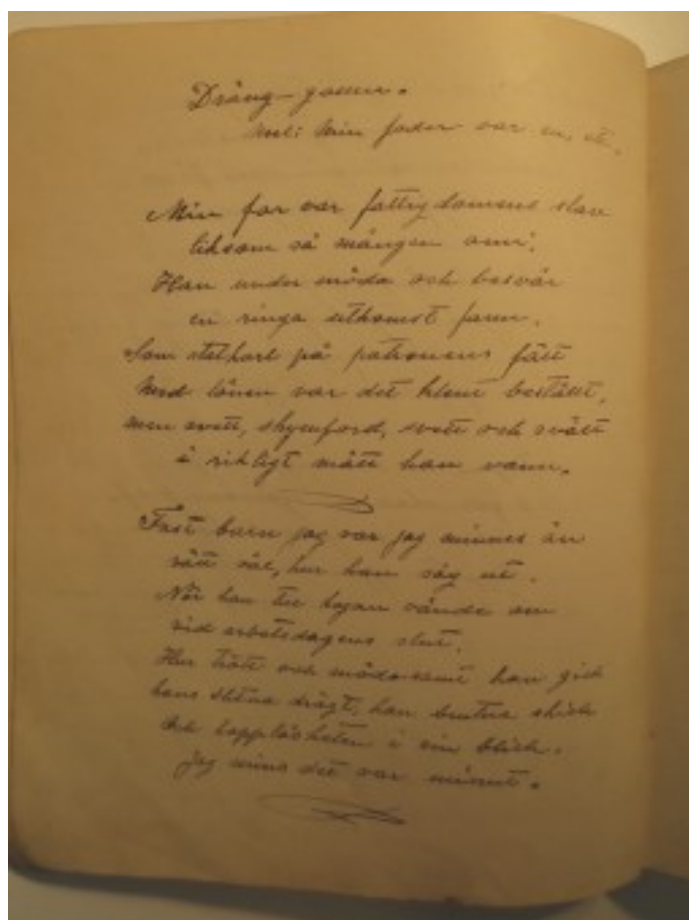 Dräng-
Mel: Min fader var en, etc.
Min far var fattigdomens slav
liksom så mången ann'.
Han under möda och besvär
en ringa utkomst fann.
Som statkarl på patronens fält
Med lönen var det klent beställt,
men svett, skymford, svett och svält
i rikligt mått han vann.
Fast barn jag var jag minnes än
rätt väl, hur han såg ut.
När han till kojan vände om
vid arbetsdagens slut.
Hur trött och mödosamt han gick
hans slitna drägt, han brutna skick
Och hopplösheten i sin blick.
jag minns det var minut.